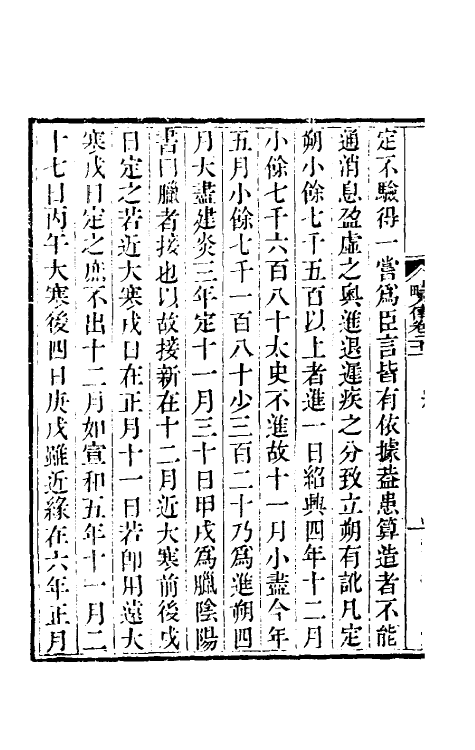 定不驗得一嘗爲臣言皆有依據葢患算造者不能
通消息盈虛之奧進退遲疾之分致立朔有訛凡定
朔小餘七千五百以上者進一日紹興四年十二月
小餘七千六百八十太史不進故十一月小盡今年
五月小餘七千一百八十少三百二十乃爲進朔四
月大盡建炎三年定十一月三十日甲戌爲臘陰陽
書曰臘者接也以故接新在十二月近大寒前後戌
日定之若近大寒戌日在正月十一日若卽用遠大
寒戌日定之庶不出十二月如宣和五年十一月二
十七日丙午大寒後四日庚戌雖近緣在六年正月